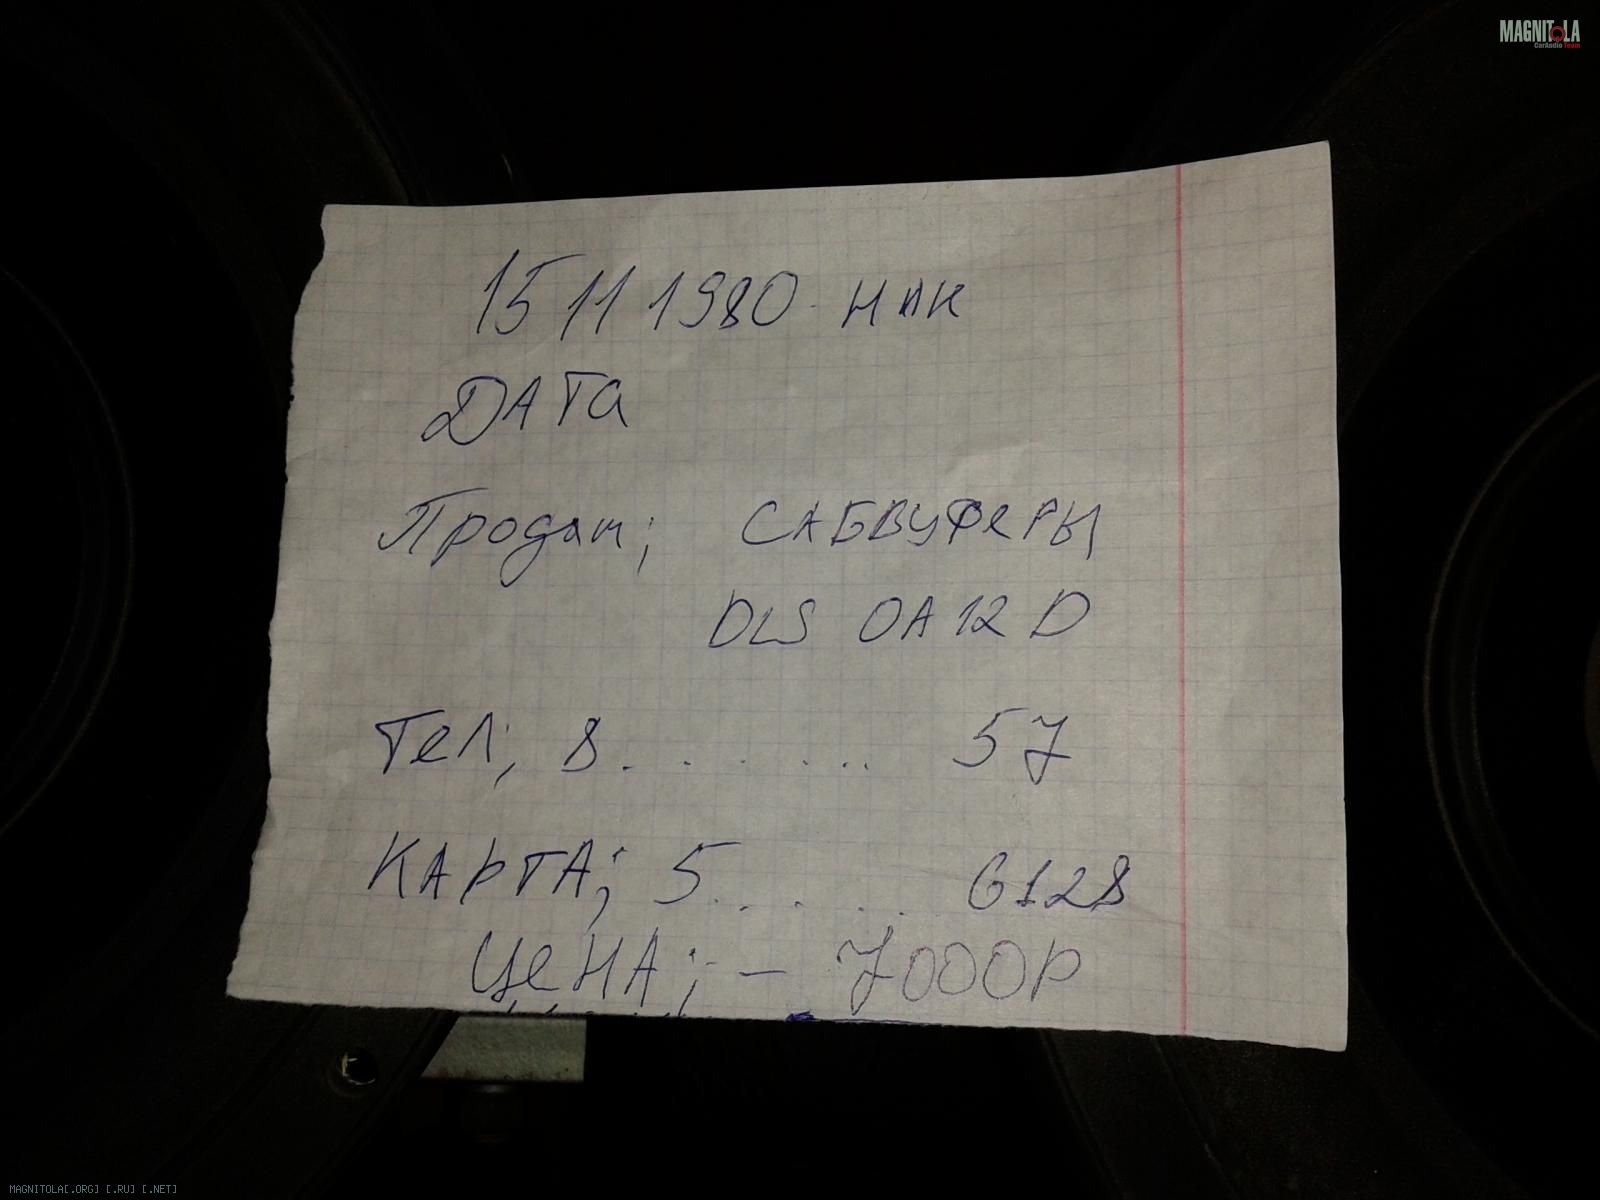 MAGNITOLA
CarAudio Team
15 11 1980 НИК
ДАТА
Продам; САБВУФеРЫ
DLS OA12D
Тел; 8. . . . . . . 57
КАРТА; 5. . . . . 6128
ЦеНА; - 7000Р
MAGNITOLA[.ORG] [.RU] [.NET]